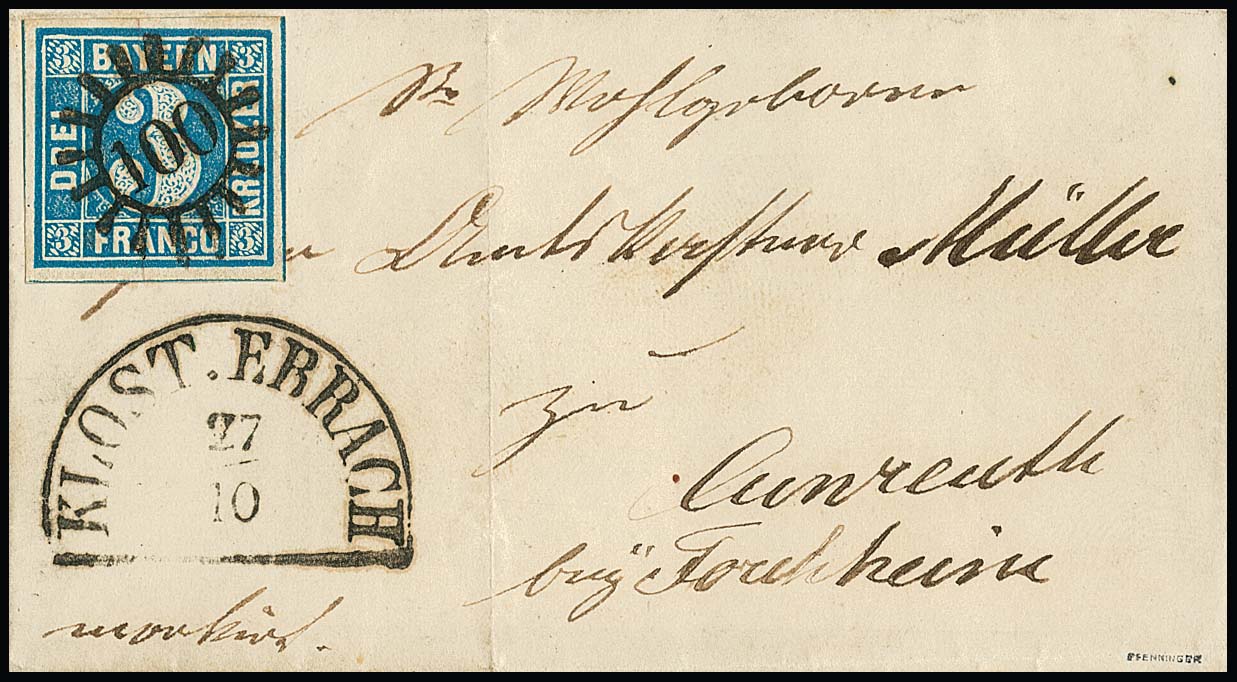 3 BAYERN 3
DREI 3 KREUZER
100
3 FRANCO 3
Sr Wohlgeboren
Müller
KLOST. EBRACH
27
10
zu
Cunreuth
bey Forchheim
markirt.
PFENNINGER